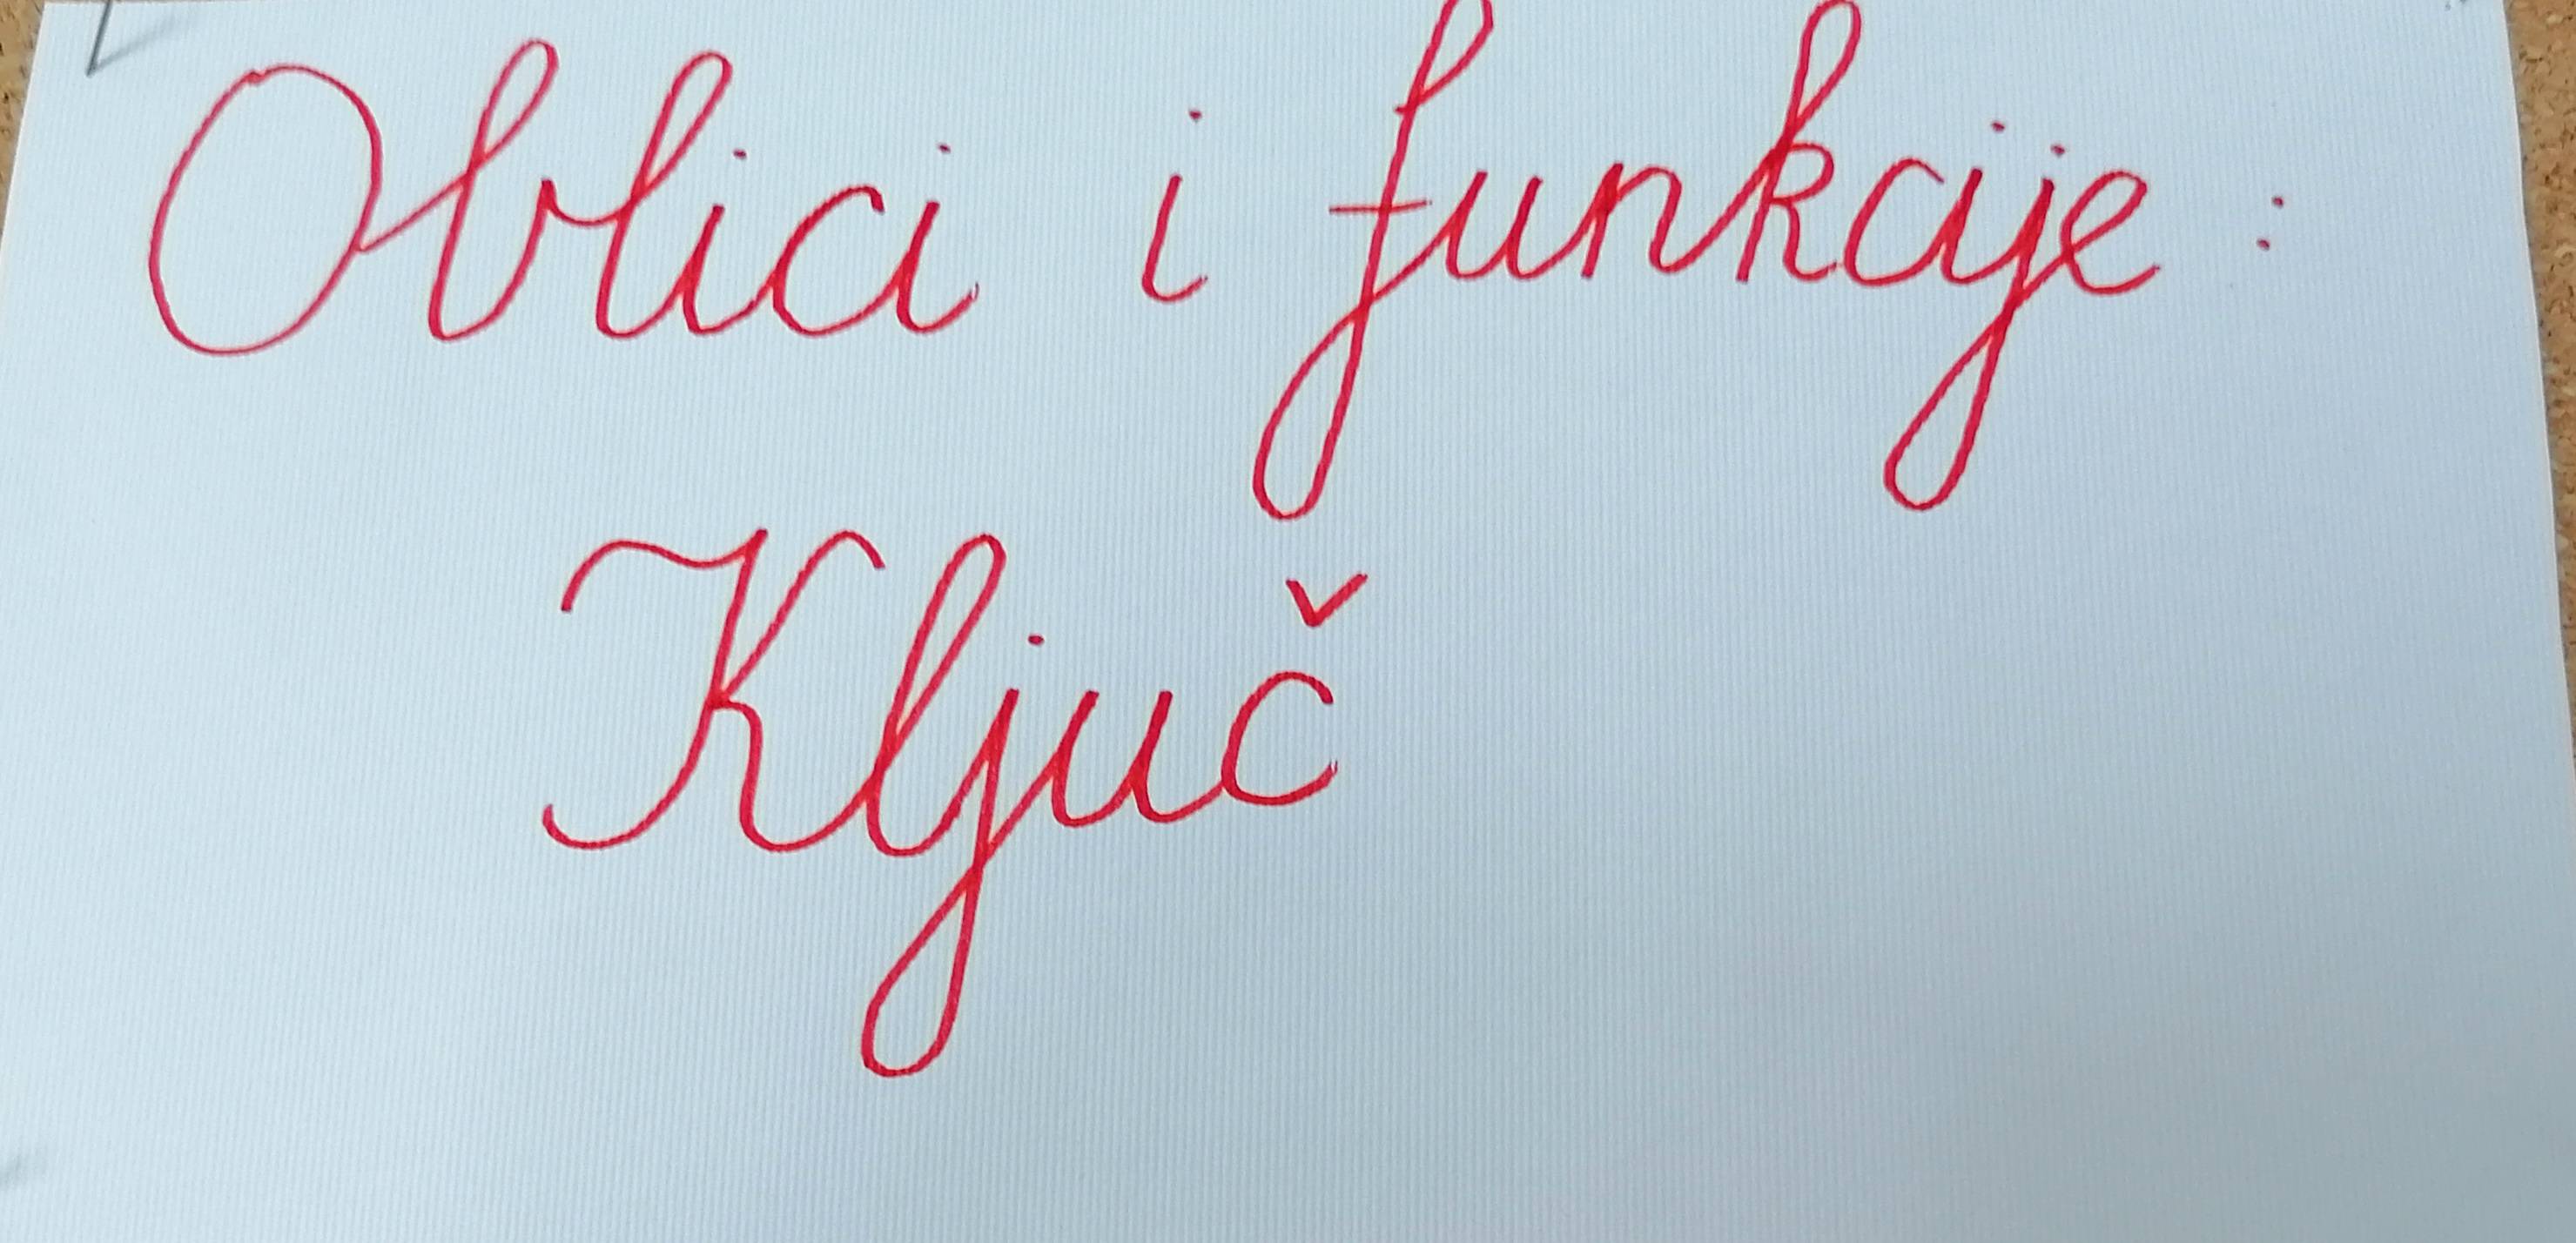 Oblici i funkcije:
Ključ